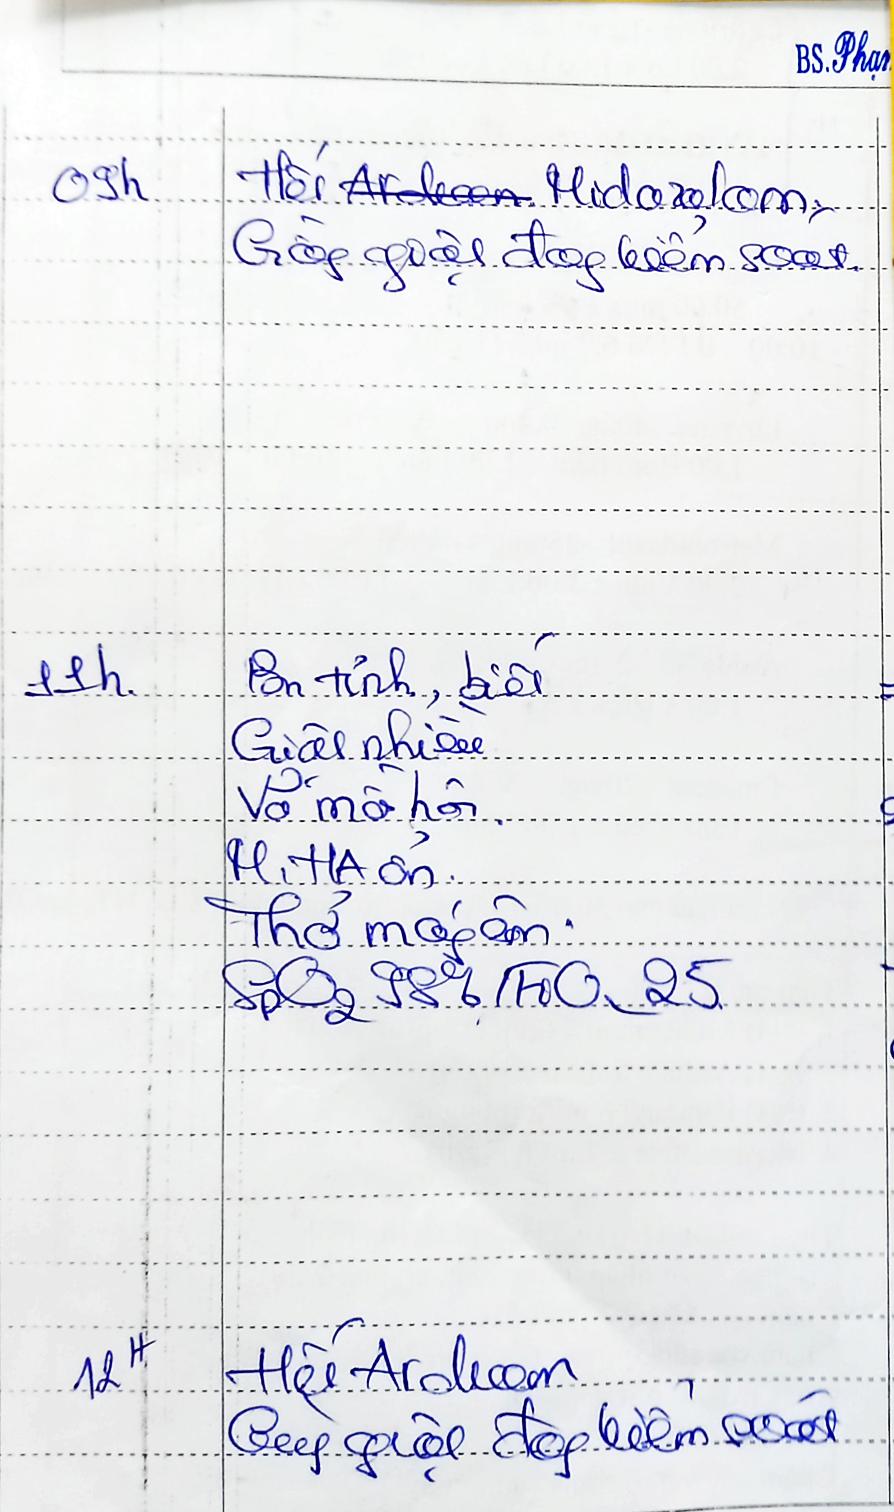 BS. Phạm
09h Hết Arduan Midazolam,
Gồng giật đang kiểm soát.
11h. Bn tỉnh, biết
Giật nhiều
Vã mồ hôi.
M, HA ổn.
Thở máy êm.
SpO2 98% / FiO2 25
12H Hết Arduan
Gồng giật đang kiểm soát